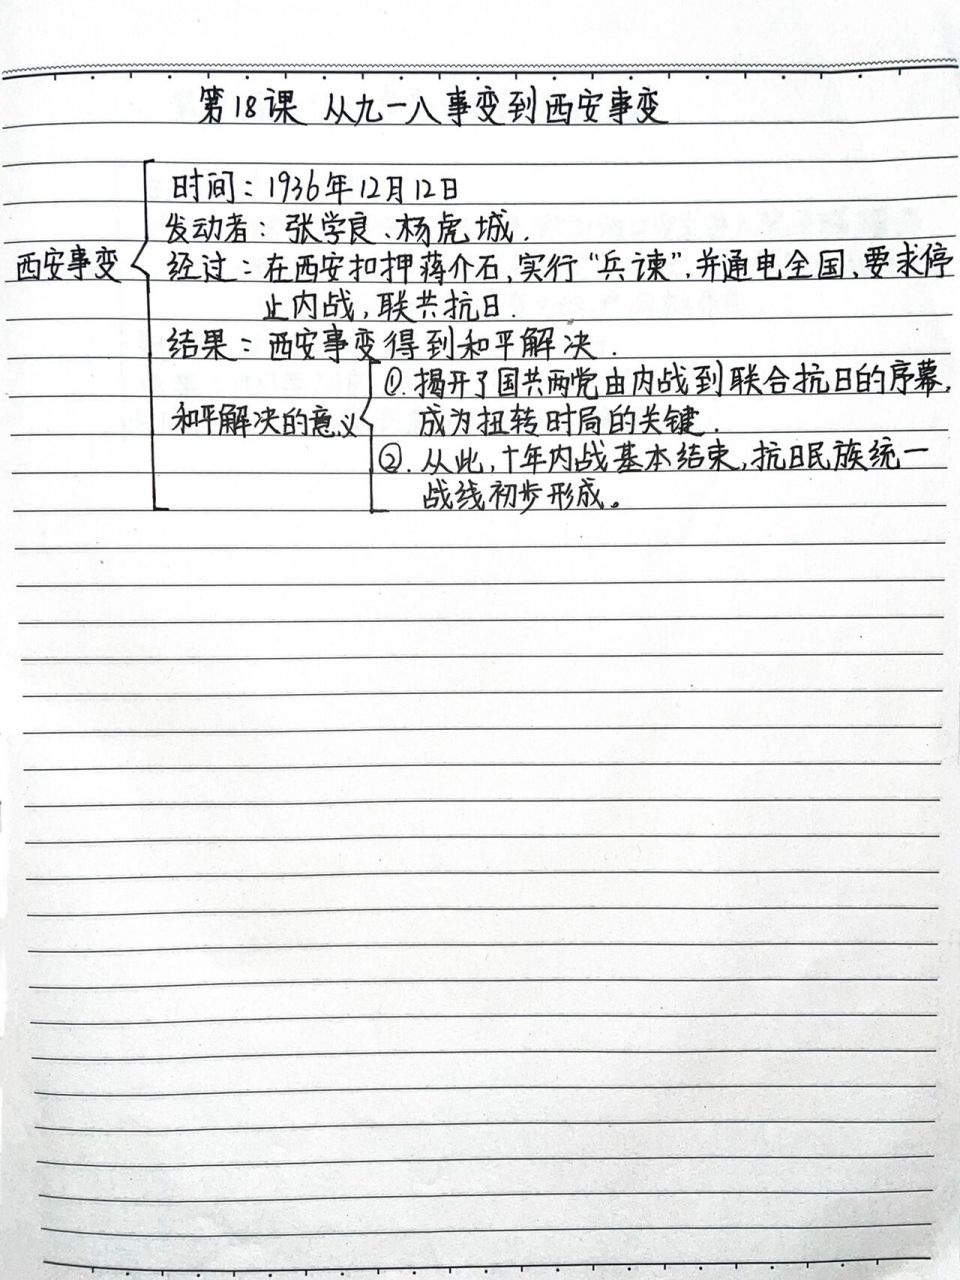 第18课 从九一八事变到西安事变
时间：1936年12月12日
发动者：张学良、杨虎城.
西安事变
经过：在西安扣押蒋介石,实行“兵谏”,并通电全国,要求停
止内战,联共抗日.
结果：西安事变得到和平解决.
①.揭开了国共两党由内战到联合抗日的序幕,
和平解决的意义
成为扭转时局的关键.
②.从此,十年内战基本结束,抗日民族统一
战线初步形成。